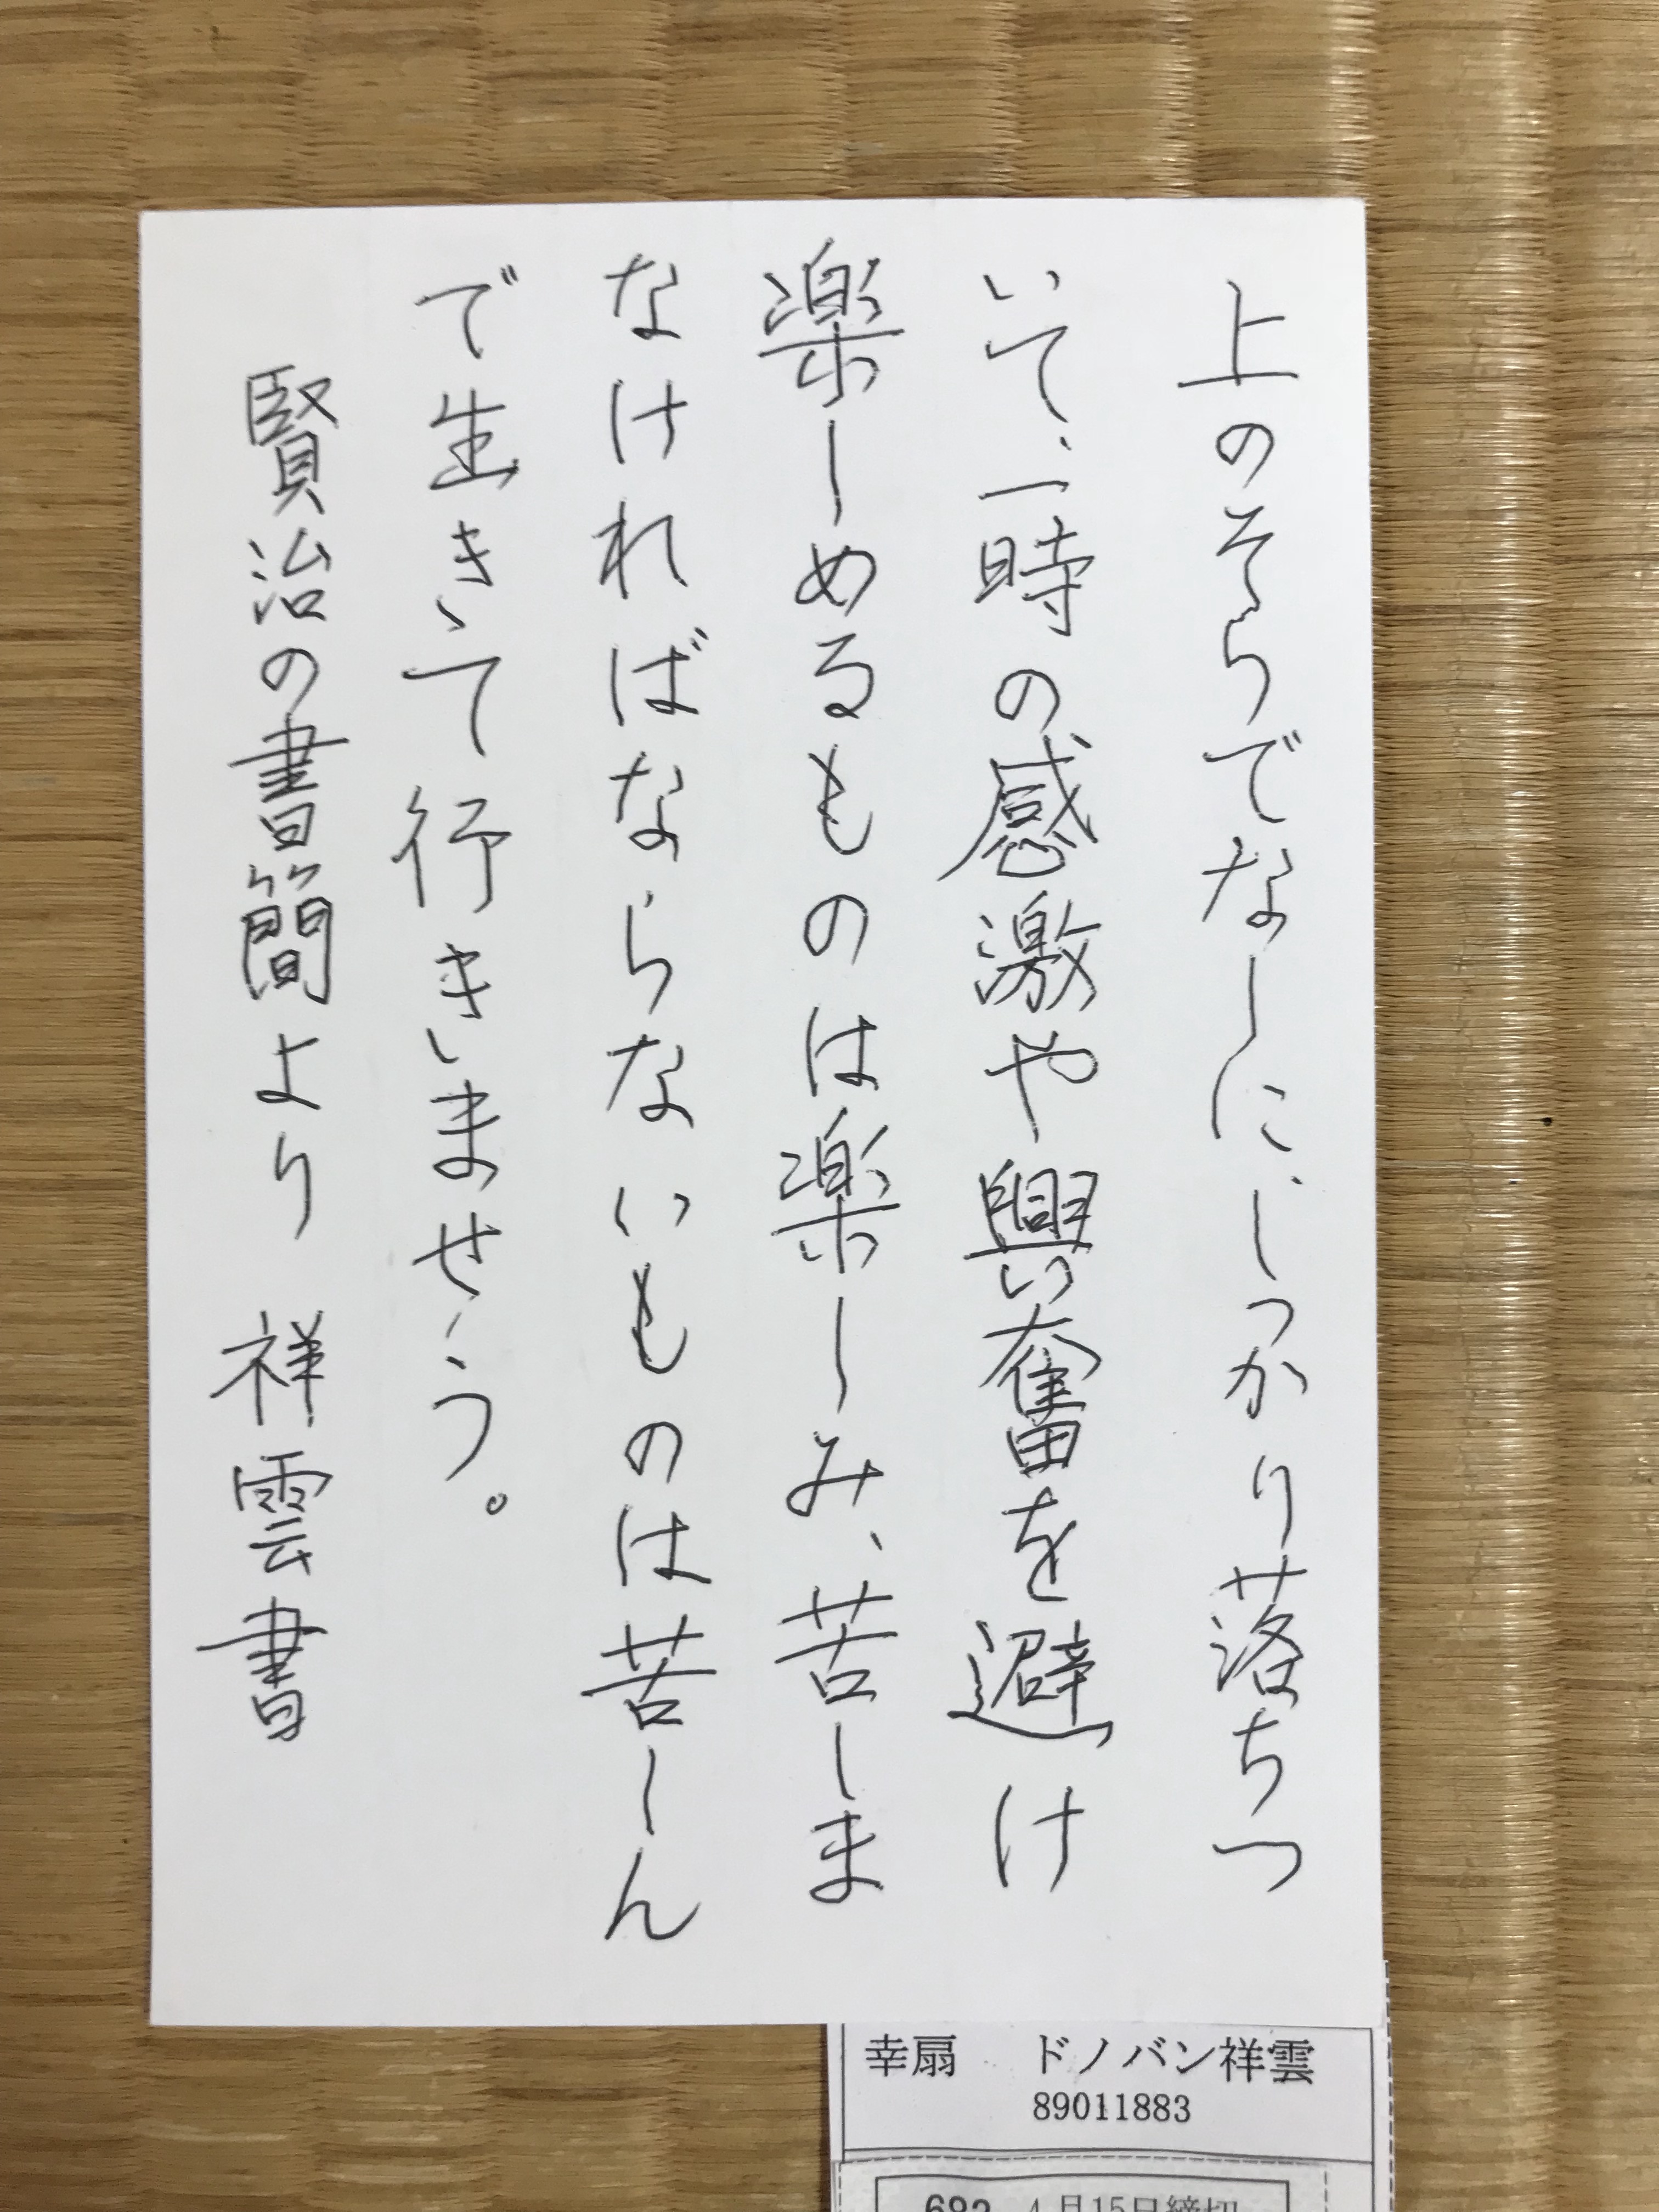 上のそらでなしに、しっかり落ちつ
いて、一時の感激や興奮を避け
楽しめるものは楽しみ、苦しま
なければならないものは苦しん
で生きて行きませう。
賢治の書簡より 祥雲書
幸扇 ドノバン祥雲
89011883
682 4月15日締切